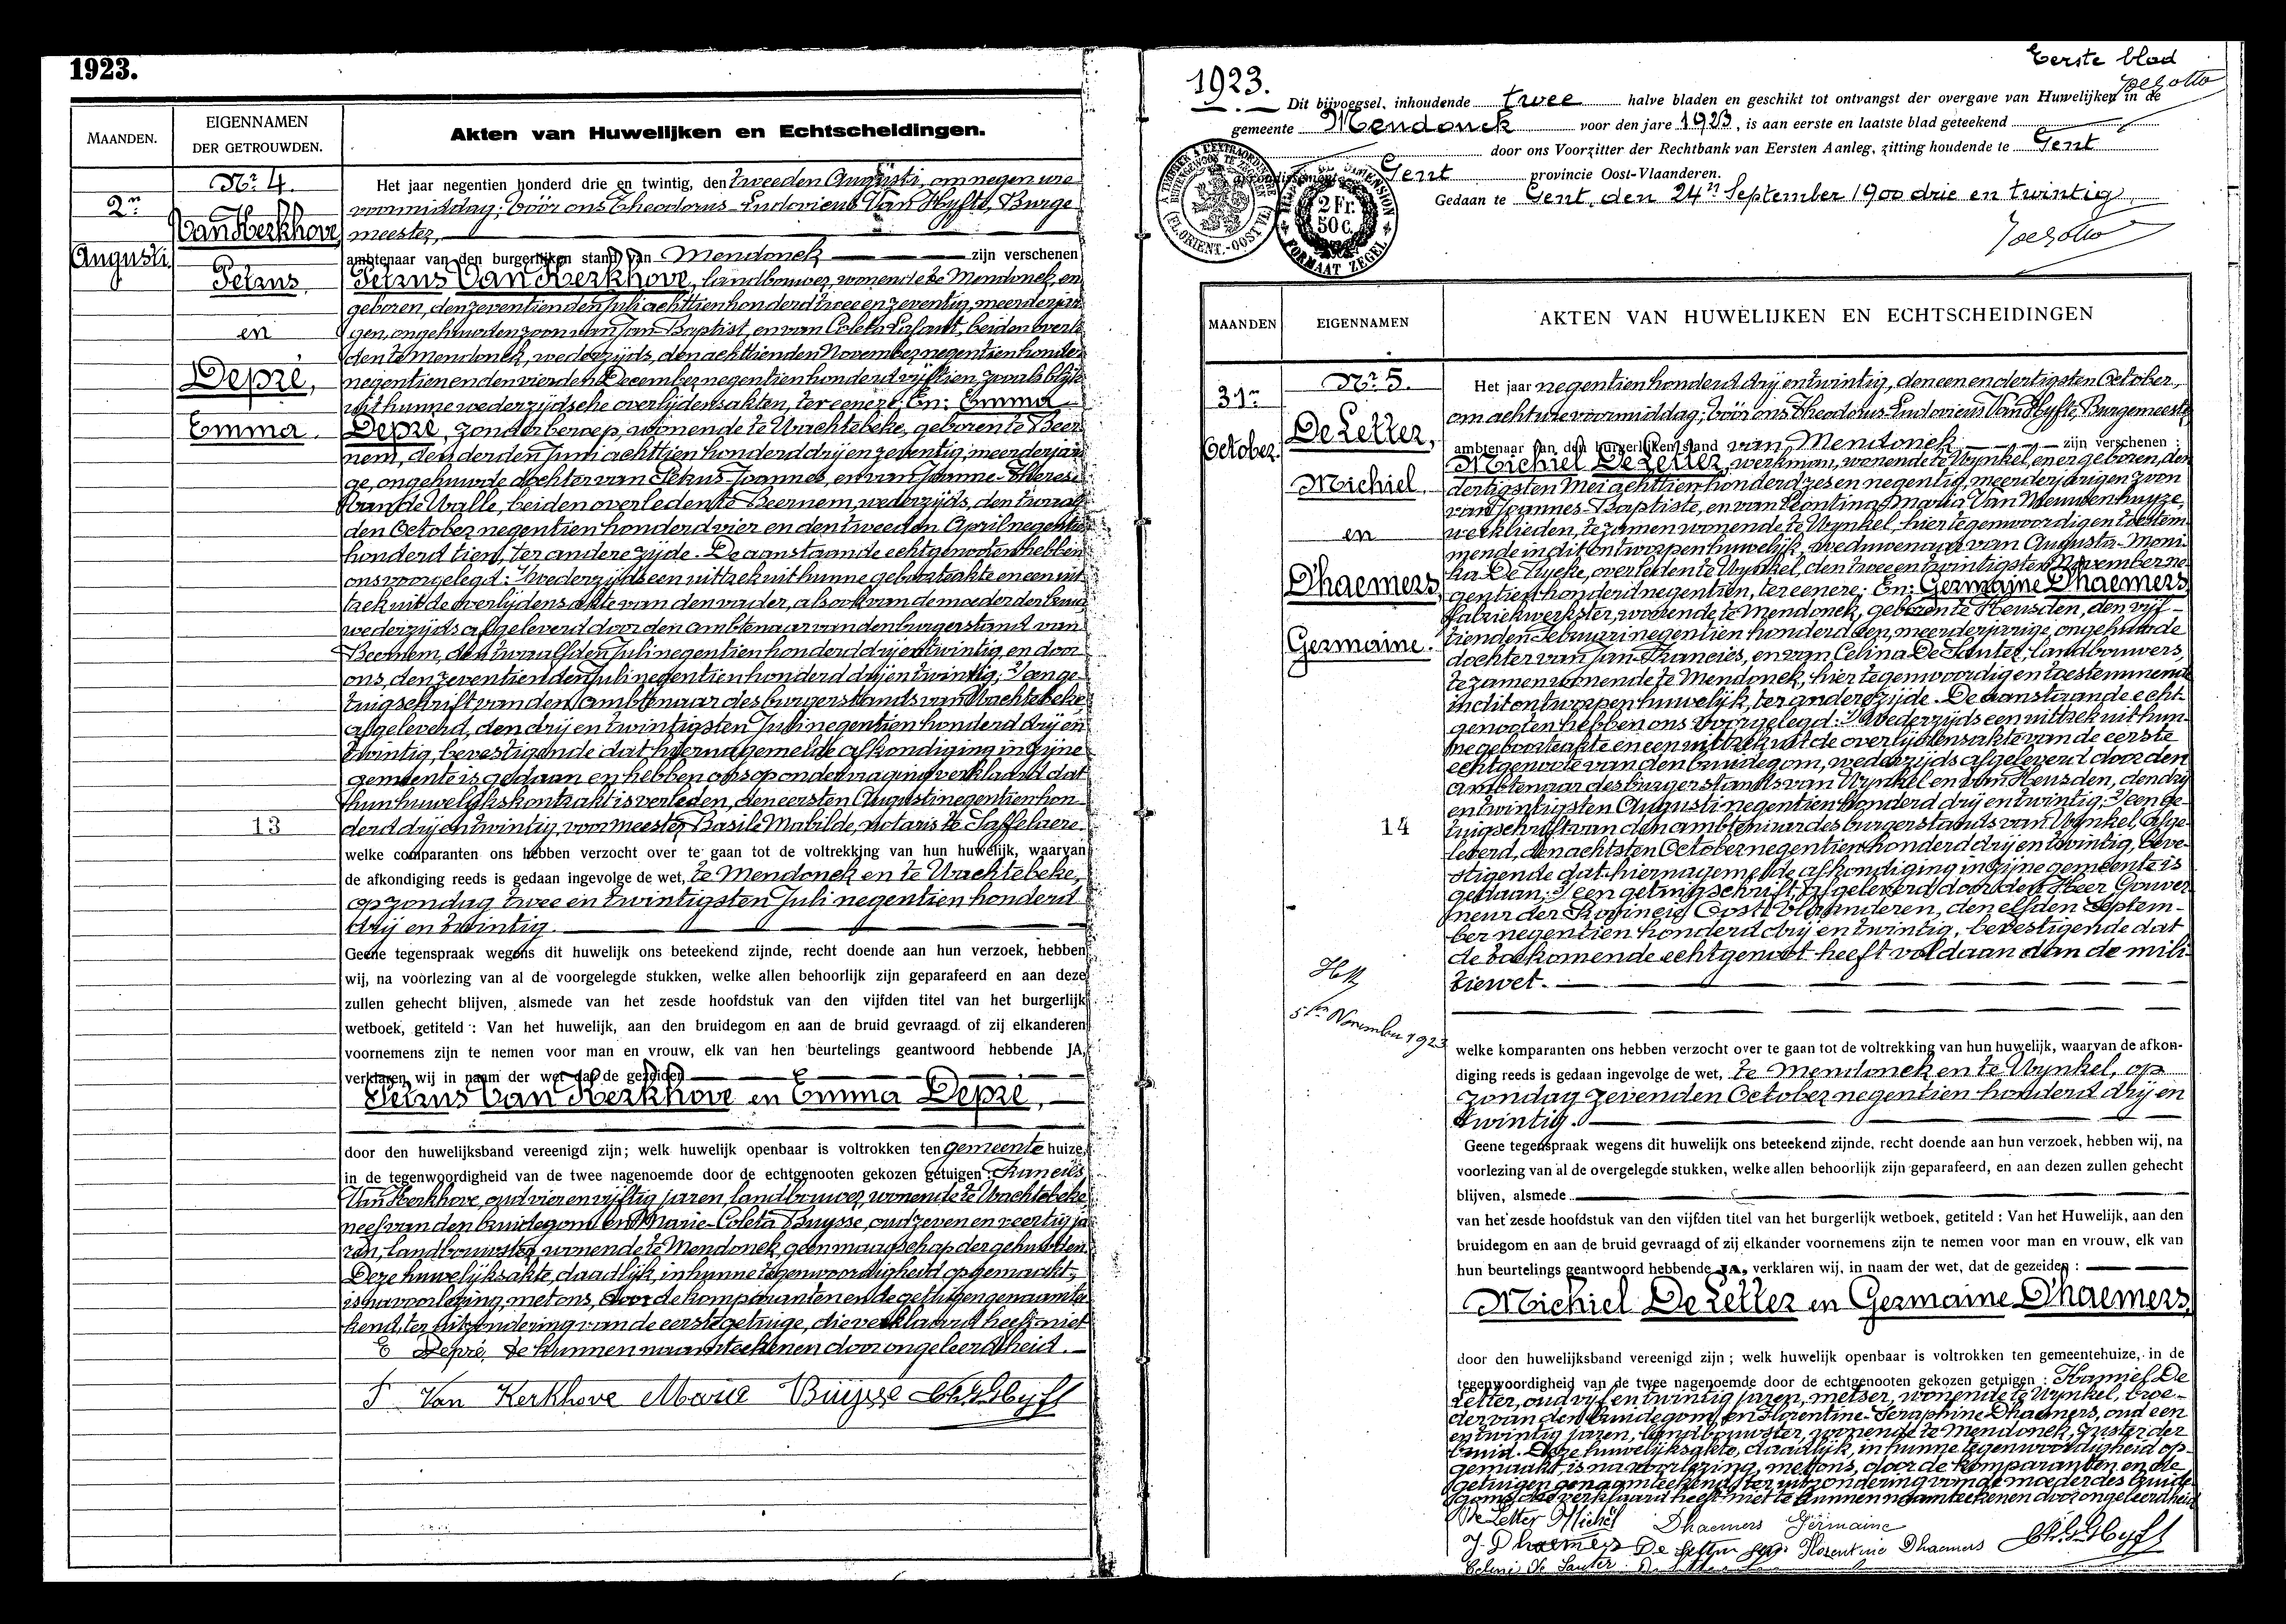 1923.
MAANDEN.
EIGENNAMEN
DER GETROUWDEN.
Akten van Huwelijken en Echtscheidingen.
2n
Augusti.
Nr 4.
Van Kerkhove,
Petrus
en
Depré,
Emma.
13
Het jaar negentien honderd drie en twintig, den tweeden Augusti, om negen ure
voormiddag; vóór ons Theodorus-Ludovicus Van Hyfte, Burge
meester,
ambtenaar van den burgerlijken stand van Mendonck zijn verschenen
Petrus Van Kerkhove, landbouwer, wonende te Mendonck, en
geboren, den zeventienden Juli achttien honderd twee en zeventig, meerderjari
gen, ongehuwden zoon van Jan-Baptist, en van Coleta Lafaut, beiden overle
den te Mendonck, wederzijds, den achttienden November negentien honderd
negentien en den vierden December negentien honderd vijftien, zooals blijkt
uit hunne wederzijdsche overlijdensakten, ter eenere; En: Emma
Depré, zonder beroep, wonende te Wachtebeke, geboren te Beer
nem, den derden Juni achttien honderd drij en zeventig, meerderjari
ge, ongehuwde dochter van Petrus-Joannes, en van Joanne-Theresia
Van de Walle, beiden overleden te Beernem, wederzijds, den twaalf
den October negentien honderd vier en den tweeden April negentien
honderd tien, ter andere zijde. De aanstaande echtgenooten hebben
ons voorgelegd: 1/ wederzijds een uittrek uit hunne geboorteakte en een uit
trek uit de overlijdensakte van den vader, alsook van de moeder der bruid
wederzijds afgeleverd door den ambtenaar van den burgerstand van
Beernem, den twaalfden Juli negentien honderd drij en twintig, en door
ons, den zeventienden Juli negentien honderd drij en twintig; 2/ een ge-
tuigschrift van den ambtenaar des burgerstands van Wachtebeke
afgeleverd, den drij en twintigsten Juli negentien honderd drij en
twintig, bevestigende dat hiernagemelde afkondiging in zijne
gemeente is gedaan en hebben ons op ondervraging verklaard dat
hun huwelijkskontrakt is verleden, den eersten Augusti negentien hon-
derd drij en twintig, voor meester Basile Mabilde, notaris te Saffelaere.
welke comparanten ons hebben verzocht over te gaan tot de voltrekking van hun huwelijk, waarvan
de afkondiging reeds is gedaan ingevolge de wet, te Mendonck en te Wachtebeke,
op zondag twee en twintigsten Juli negentien honderd
drij en twintig.
Geene tegenspraak wegens dit huwelijk ons beteekend zijnde, recht doende aan hun verzoek, hebben
wij, na voorlezing van al de voorgelegde stukken, welke allen behoorlijk zijn geparafeerd en aan deze
zullen gehecht blijven, alsmede van het zesde hoofdstuk van den vijfden titel van het burgerlijk
wetboek, getiteld : Van het huwelijk, aan den bruidegom en aan de bruid gevraagd of zij elkanderen
voornemens zijn te nemen voor man en vrouw, elk van hen beurtelings geantwoord hebbende JA,
verklaren wij in naam der wet dat de gezeiden
Petrus Van Kerkhove en Emma Depré,
door den huwelijksband vereenigd zijn; welk huwelijk openbaar is voltrokken ten gemeente huize,
in de tegenwoordigheid van de twee nagenoemde door de echtgenooten gekozen getuigen : Francies
Van Kerkhove, oud vier en vijftig jaren, landbouwer, wonende te Wachtebeke
neef van den bruidegom en Marie-Coleta Buysse, oud zeven en veertig ja
ren, landbouwster, wonende te Mendonck, geen maagschap der gehuwden.
Deze huwelijksakte, daadlijk, in hunne tegenwoordigheid opgemaakt,
is na voorlezing, met ons, door de komparanten en de getuigen genaamtee
kend, ter uitzondering van de eerste getuige, die verklaard heeft niet
E Depré. te kunnen naamteekenen door ongeleerdheid.
Van Kerkhove Marie Buÿsse Th. L. V. Hyfte
1923.
Eerste blad
Dit bijvoegsel, inhoudende twee halve bladen en geschikt tot ontvangst der overgave van Huwelijken in de
gemeente Mendonck voor den jare 1923, is aan eerste en laatste blad geteekend
door ons Voorzitter der Rechtbank van Eersten Aanleg, zitting houdende te Gent
arrondissement Gent provincie Oost-Vlaanderen.
Gedaan te Gent, den 24n September 1900 drie en twintig
A TIMBRER A L'EXTRAORDINAIRE
BUITENGEWOON TE ZEGELEN
(FL. ORIENT.-OOST VL.)
2 Fr.
50 c.
FORMAAT ZEGEL
MAANDEN
EIGENNAMEN
AKTEN VAN HUWELIJKEN EN ECHTSCHEIDINGEN
31n
October.
Nr 5.
De Letter,
Michiel
en
Dhaemers,
Germaine.
14
5en November 1923
Het jaar negentien honderd drij en twintig, den een en dertigsten October,
om acht ure voormiddag; vóór ons Theodorus-Ludovicus Van Hyfte, Burgemeester
ambtenaar van den burgerlijken stand van Mendonck zijn verschenen :
Michiel De Letter, werkman, wonende te Wynkel, en er geboren, den
dertigsten Mei achttien honderd zes en negentig, meerderjarigen zoon
van Joannes-Baptiste, en van Leontina-Maria Van Nieuwenhuyze,
werklieden, te zamen wonende te Wynkel, hier tegenwoordig en toestem-
mende in dit ontworpen huwelijk, weduwenaar van Augusta-Moni-
ka De Tuycke, overleden te Wynkel, den twee en twintigsten November ne-
gentien honderd negentien, ter eenere; En: Germaine Dhaemers,
fabriekwerkster, wonende te Mendonck, geboren te Heusden, den vijf-
tienden Februari negentien honderd een, meerderjarige, ongehuwde
dochter van Jan-Francies, en van Celina De Sauter, landbouwers,
te zamen wonende te Mendonck, hier tegenwoordig en toestemmende
in dit ontworpen huwelijk, ter andere zijde. De aanstaande echt-
genooten hebben ons voorgelegd: 1/ Wederzijds een uittrek uit hun-
ne geboorteakte en een uittrek uit de overlijdensakte van de eerste
echtgenoote van den bruidegom, wederzijds afgeleverd door den
ambtenaar des burgerstands van Wynkel en van Heusden, den drij
en twintigsten Augusti negentien honderd drij en twintig; 2/ een ge-
tuigschrift van den ambtenaar des burgerstands van Wynkel, afge-
leverd, den achtsten October negentien honderd drij en twintig, beve-
stigende dat hiernagemelde afkondiging in zijne gemeente is
gedaan; 3/ een getuigschrift, afgeleverd door den Heer Gouver-
neur der Provincie Oost-Vlaanderen, den elfden Septem-
ber negentien honderd drij en twintig, bevestigende dat
de toekomende echtgenoot heeft voldaan aan de mili-
tiewet.
welke komparanten ons hebben verzocht over te gaan tot de voltrekking van hun huwelijk, waarvan de afkon-
diging reeds is gedaan ingevolge de wet, te Mendonck en te Wynkel, op
zondag zevenden October negentien honderd drij en
twintig.
Geene tegenspraak wegens dit huwelijk ons beteekend zijnde, recht doende aan hun verzoek, hebben wij, na
voorlezing van al de overgelegde stukken, welke allen behoorlijk zijn geparafeerd, en aan dezen zullen gehecht
blijven, alsmede
van het zesde hoofdstuk van den vijfden titel van het burgerlijk wetboek, getiteld : Van het Huwelijk, aan den
bruidegom en aan de bruid gevraagd of zij elkander voornemens zijn te nemen voor man en vrouw, elk van
hun beurtelings geantwoord hebbende JA, verklaren wij, in naam der wet, dat de gezeiden :
Michiel De Letter en Germaine Dhaemers,
door den huwelijksband vereenigd zijn ; welk huwelijk openbaar is voltrokken ten gemeentehuize, in de
tegenwoordigheid van de twee nagenoemde door de echtgenooten gekozen getuigen : Kamiel De
Letter, oud vijf en twintig jaren, metser, wonende te Wynkel, broe-
der van den bruidegom, en Florentine-Seraphine Dhaemers, oud een
en twintig jaren, landbouwster, wonende te Mendonck, zuster der
bruid. Deze huwelijksakte, daadlijk, in hunne tegenwoordigheid op-
gemaakt, is na voorlezing, met ons, door de komparanten en de
getuigen genaamteekend, ter uitzondering van de moeder des bruide-
goms, die verklaard heeft niet te kunnen naamteekenen door ongeleerdheid
De Letter Michel Dhaemers Germaine
J. Dhaemers De Letter Florentine Dhaemers Th. L. V. Hyfte
Celine De Sauter